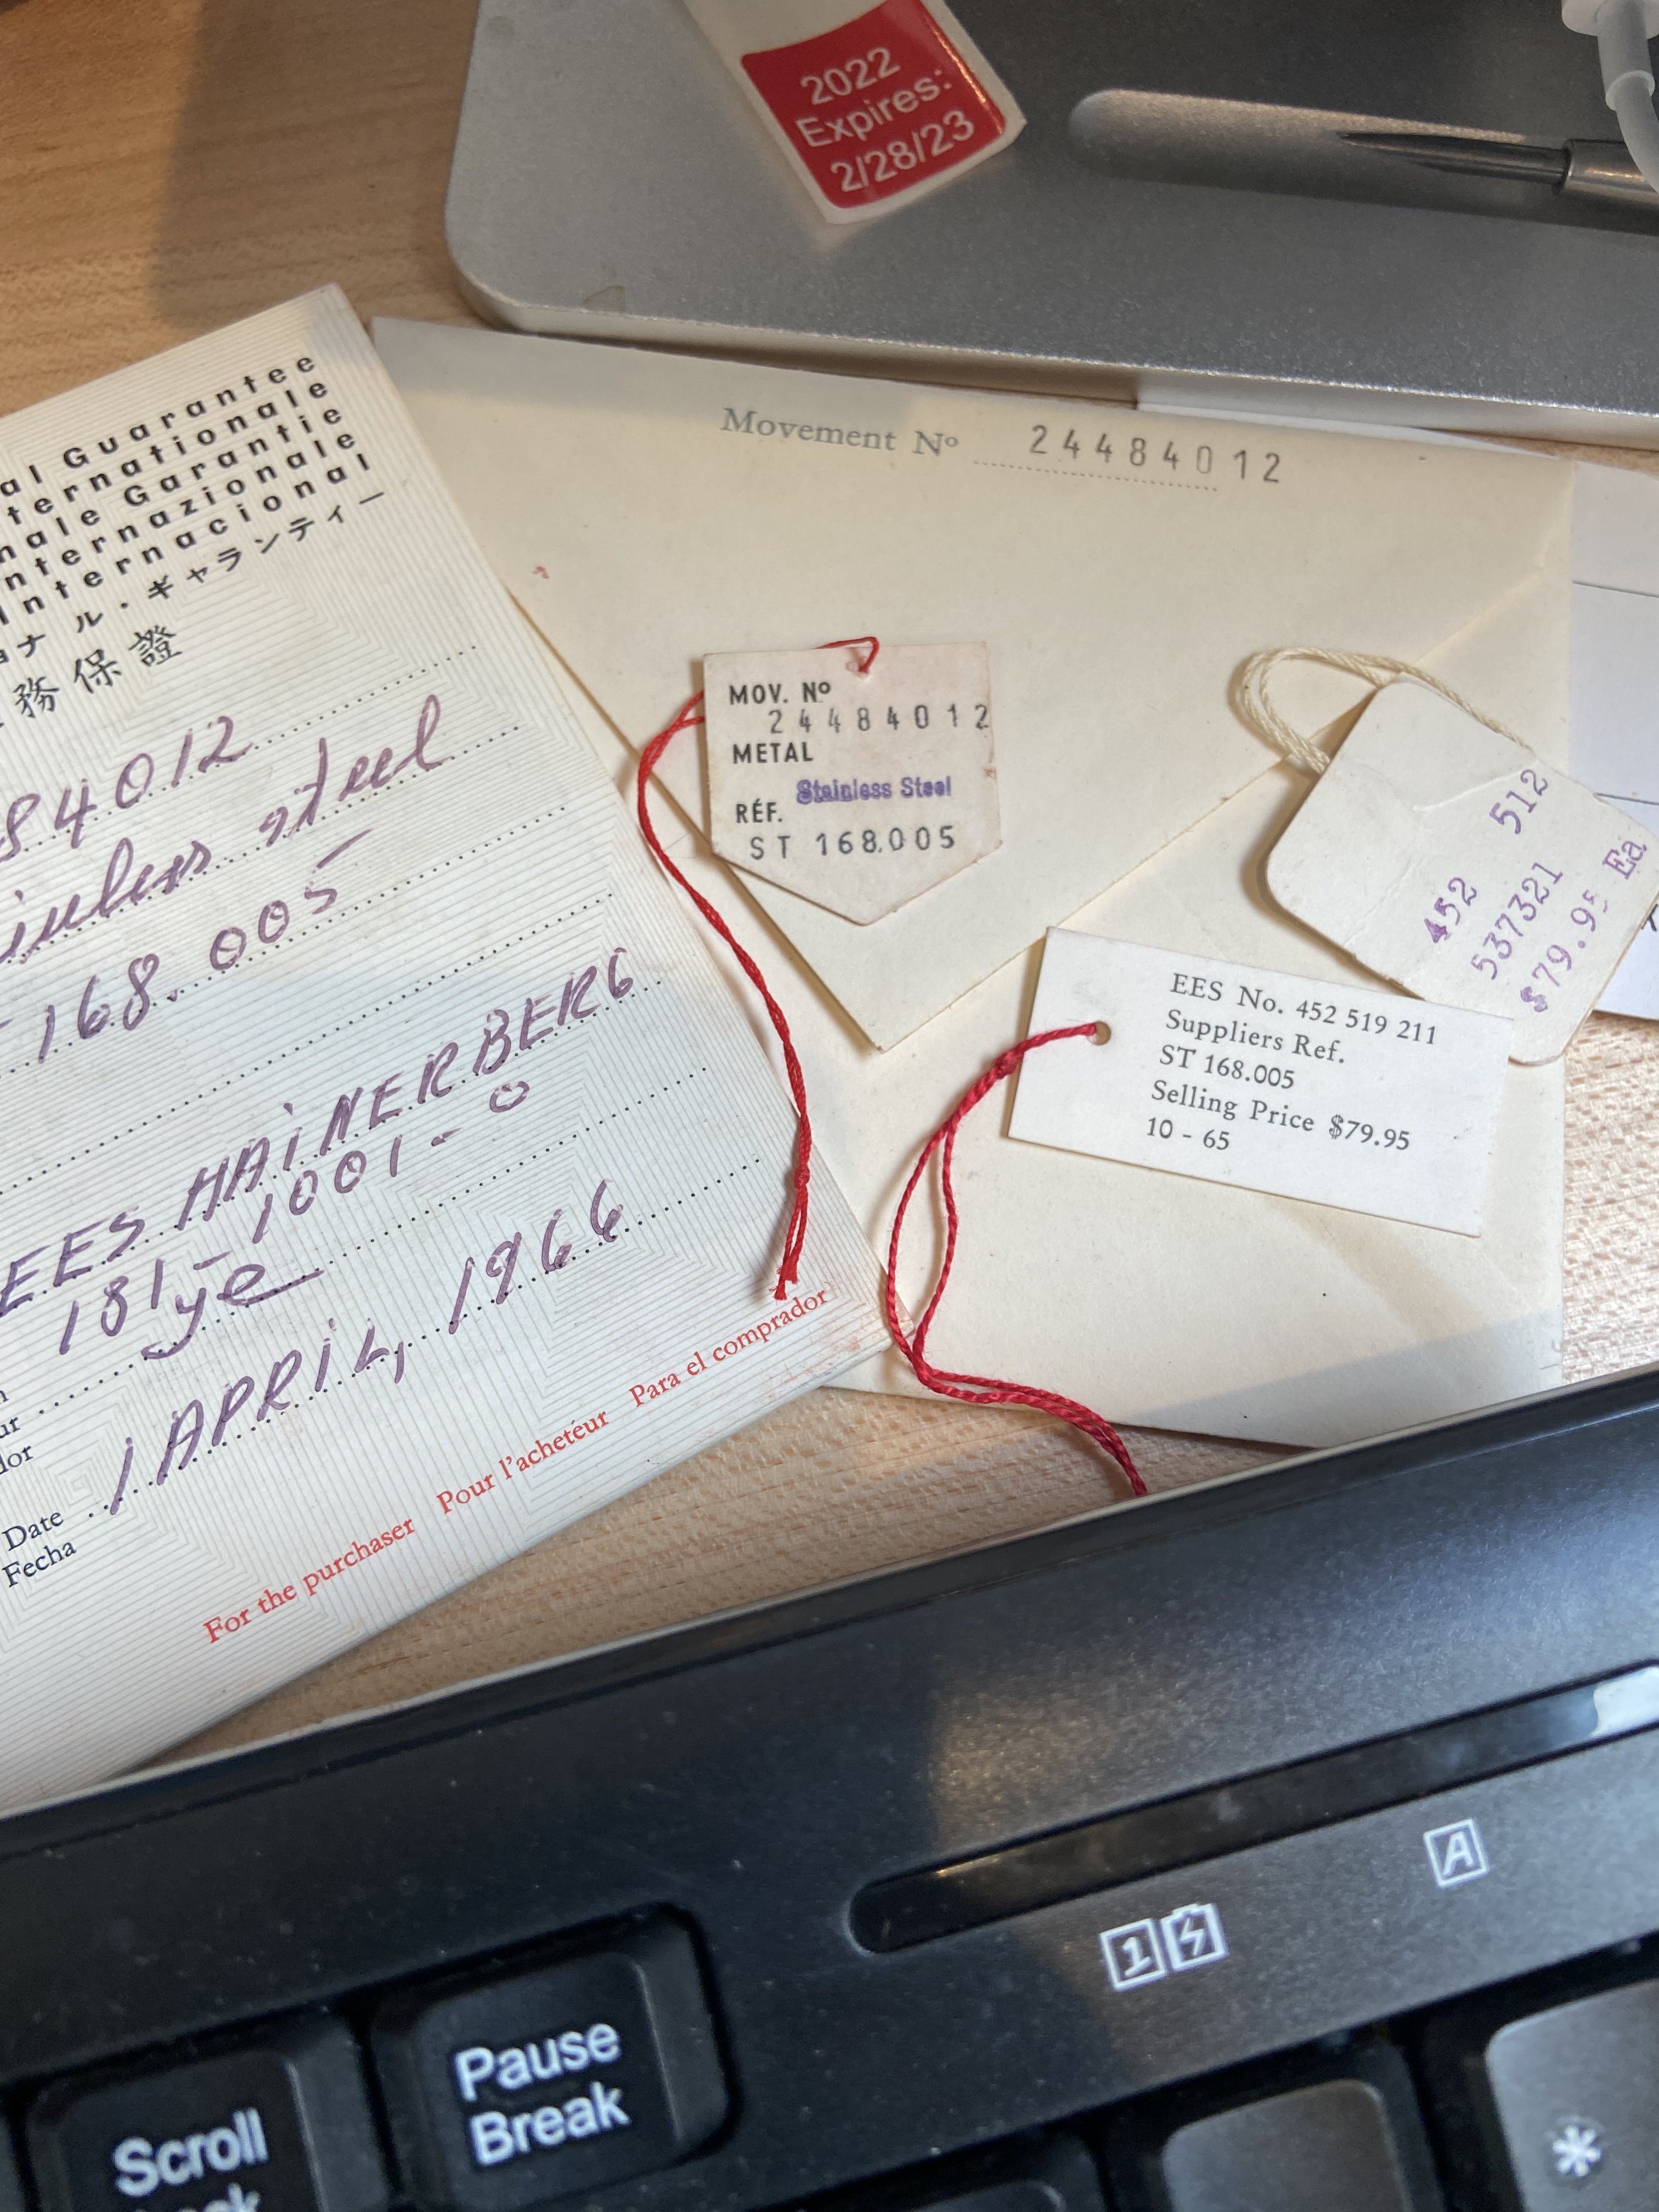 2022
Expires:
2/28/23
Guarantee
Garantie
ル・ギャランティー
務保證
84012
steel
168.005
EES HAINERBERG
181-1001-0
1 APRIL, 1966
Date
Fecha
For the purchaser Pour l'acheteur Para el comprador
Movement Nº 24484012
MOV. Nº
24484012
METAL
Stainless Steel
RÉF.
ST 168.005
452 512
537321
$79.95 Ea
EES No. 452 519 211
Suppliers Ref.
ST 168.005
Selling Price $79.95
10 - 65
A
1
Pause
Break
Scroll
*